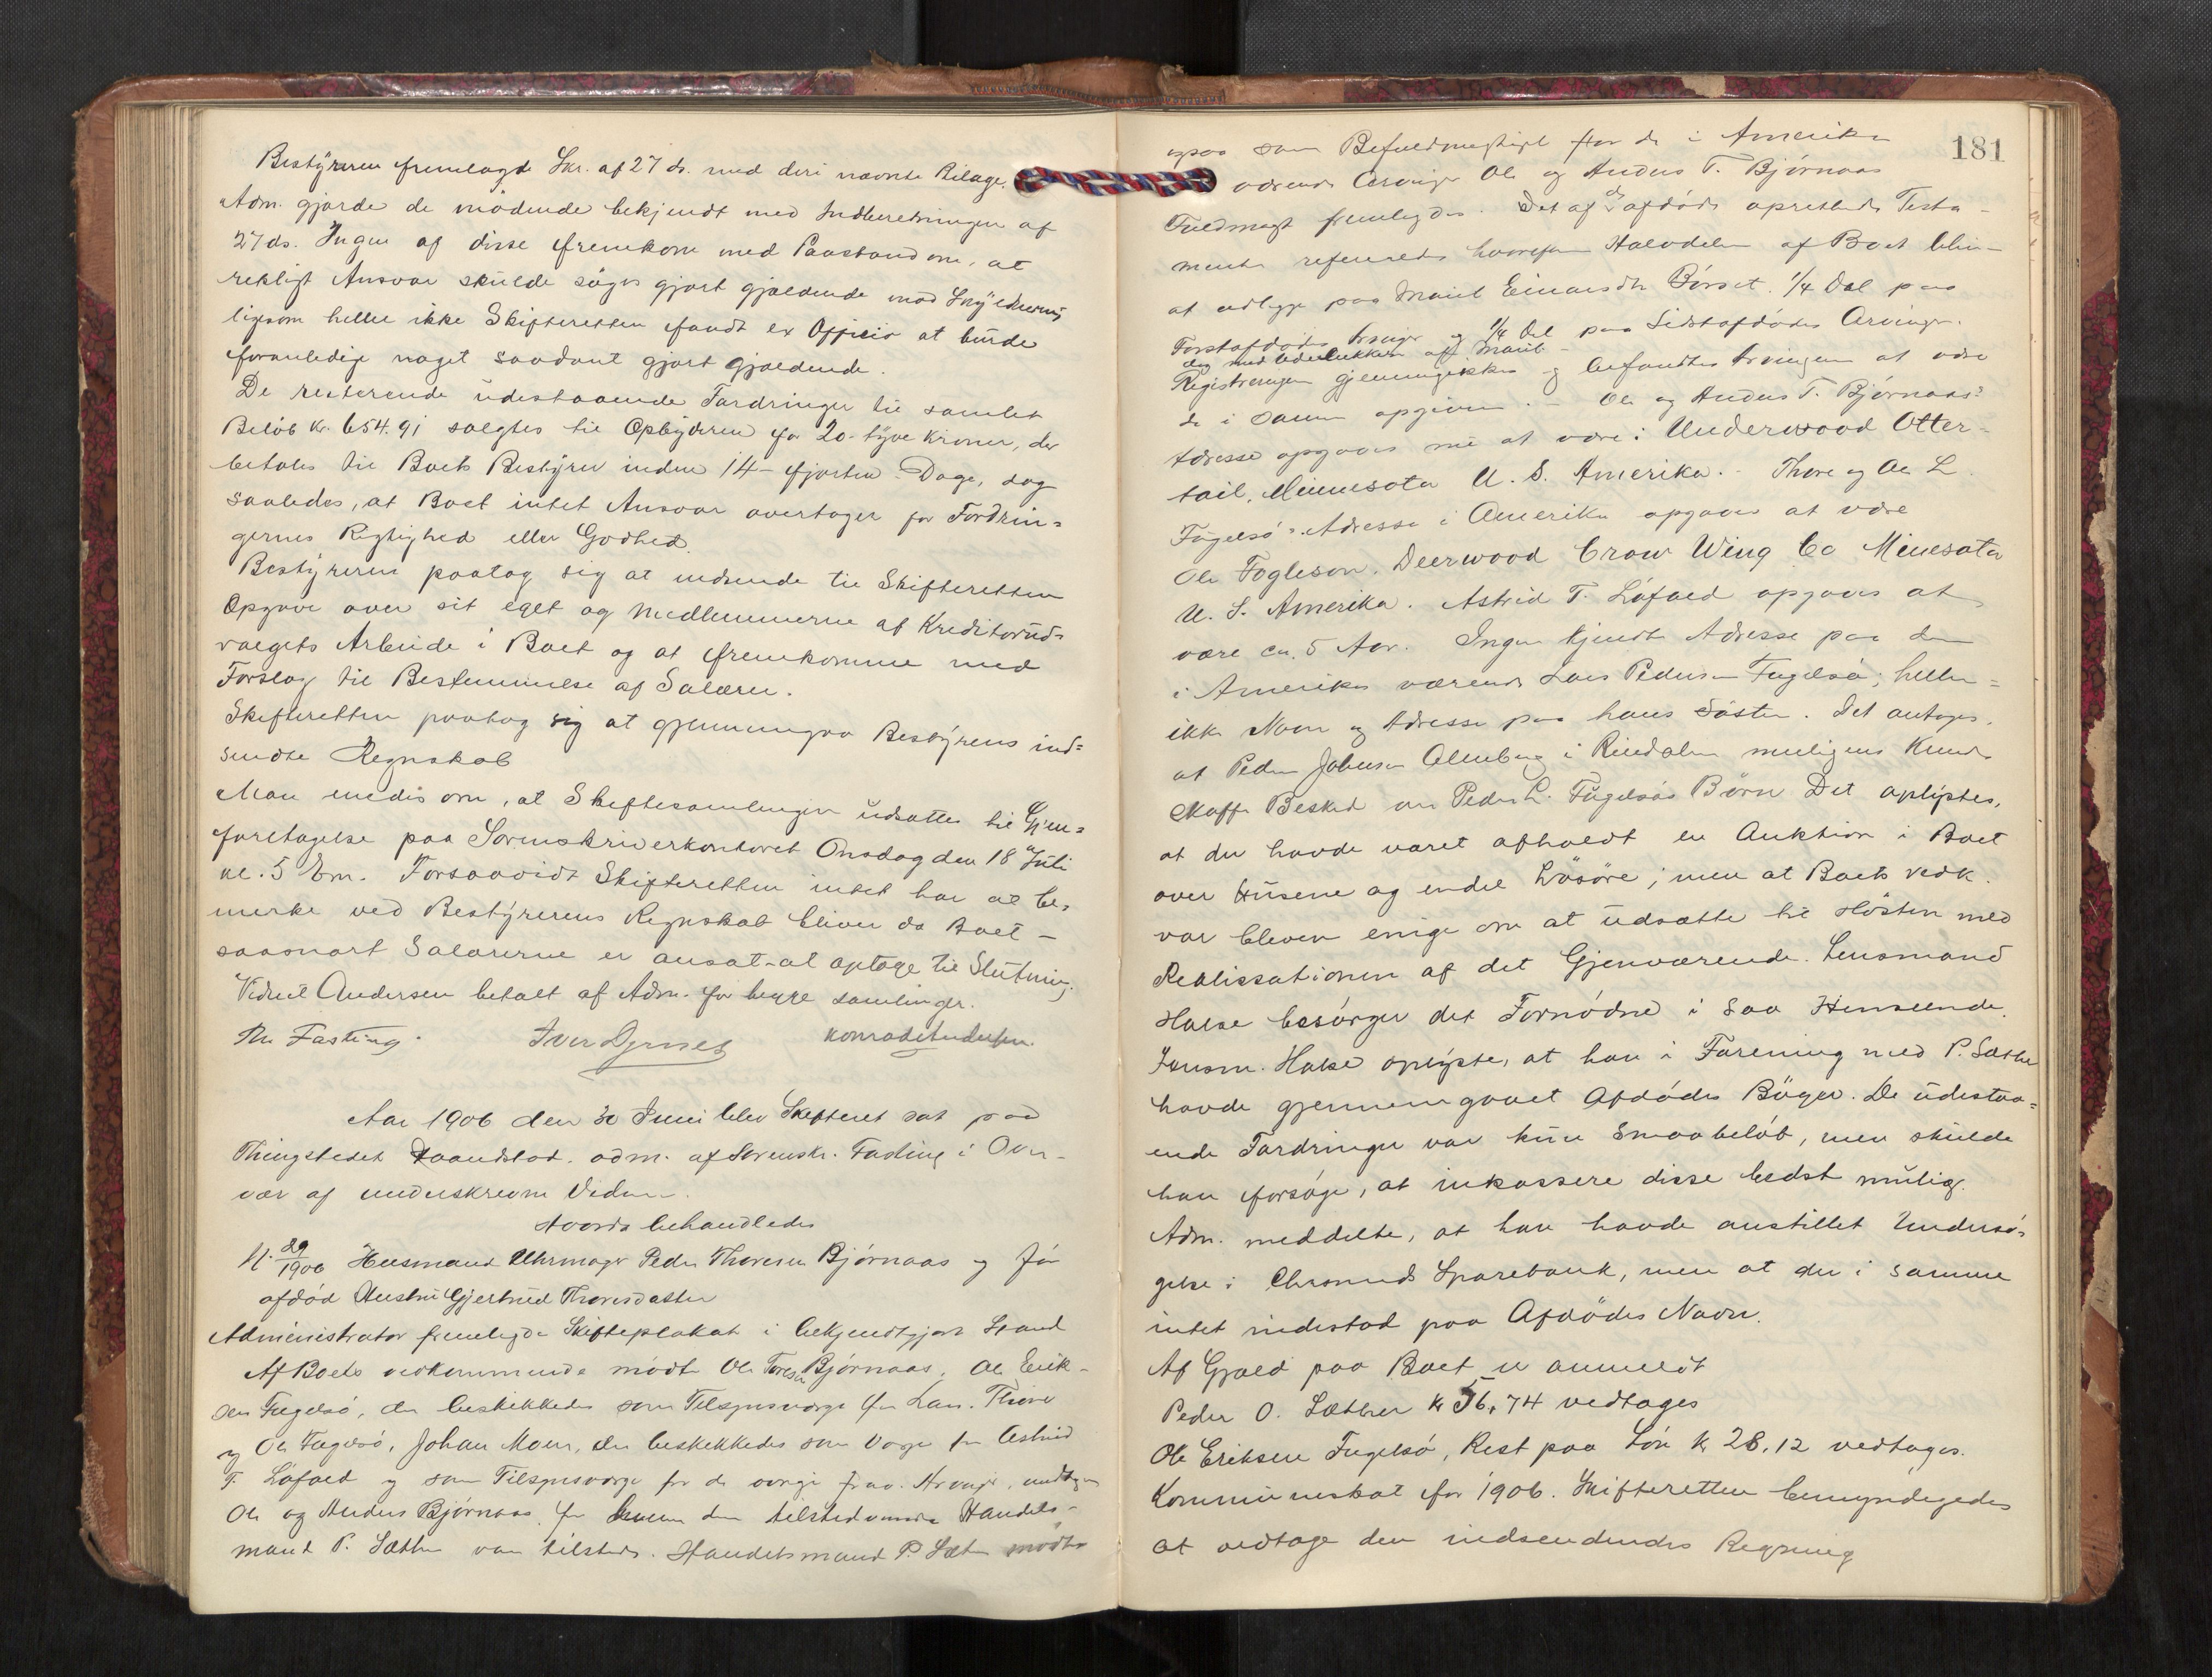 Bestÿreren fremlagde Skr. af 27 ds. med deri nævnte Bilage.
Adm. gjorde de mødende bekjendt med Indberetningen af
27 ds. Ingen af disse fremkom med Paastand om, at
retsligt Ansvar skulde søges gjort gjældende mod Skÿldneren,
ligesom heller ikke Skifteretten fandt ex Officio at burde
foranledige noget saadant gjort gjældende.
De resterende udestaaende Fordringer til samlet
Beløb kr. 654.91 solgtes til Opbÿderen for 20 - tyve kroner, der
betales til Boets Bestÿrer inden 14 - fjorten - Dage, dog
saaledes, at Boet intet Ansvar overtager for Fordrin=
gernes Rigtighed eller Godhed.
Bestÿreren paatog sig at indsende til Skifteretten
Opgave over sit eget og Medlemmerne af Kreditorud=
valgets Arbeide i Boet og at fremkomme med
Forslag til Bestemmelse af Salærer.
Skifteretten paatog sig at gjennemgaa Bestÿrerens ind=
sendte Regnskab
Man enedes om, at Skiftesamlingen udsattes til Gjen=
foretagelse paa Sorenskriverkontoret Onsdag den 18 Juli
kl. 5 Em. Forsaavidt Skifteretten intet har at be=
merke ved Bestÿrerens Regnskab bliver da Boet -
saasnart Salærerne er ansat - at optage til Slutning.
Vidnet Andersen betalt af Adm. for begge samlinger.
Th. Fasting. Iver Dyrnes Konrad Andersen.
Aar 1906 den 30 Juni blev Skifteret sat paa
Thingstedet Haandstad. adm. af Sorenskr. Fasting i Over-
vær af underskrevne Vidner.
Hvorda behandledes
N. 29/1906 Husmand Uhrmager Peder Thoresen Bjørnaas og før
afdød Hustru Gjertrud Thoresdatter
Administrator fremlagde Skifteplakat i bekjendtgjort Stand
Af Boets vedkommende mødte Ole Toresen Bjørnaas, Ole Erik-
sen Fugelsø, der beskikkedes som Tilsynsværge for Lars, Thore
og Ole Fugelsø, Johan Moen, der beskikkedes som Værge for Astrid
T. Løfald og som Tilsynsværge for de øvrige frav. Arvinger, undtagen
Ole og Anders Bjørnaas, for hvem den tilstedeværende Handels-
mand P. Sæther var tilstede. Handelsmand P. Sæther mødte
181
ogsaa som Befuldmægtiget for de i Amerika
værende Arvinger Ole og Anders T. Bjørnaas
Fuldmagt fremlagdes. Det af de afdøde oprettede Testa-
mente refereredes hvorefter Halvdelen af Boet bliv-
at udlægge paa Marit Einarsdtr Børset. 1/4 Del paa
Førstafdødes Arvinger og 1/4 Del paa Sidstafdødes Arvinger.
dog med Udelukkelse af Marit -
Registreringen gjennemgikkes og befandtes Arvingerne at være
de i samme opgivne. - Ole og Anders T. Bjørnaas's
Adresse opgaves nu at være: Underwood Otter=
tail, Minnesota U. S. Amerika. - Thore og Ole L.
Fugelsø's Adresse i Amerika opgaves at være
Ole Fogleson. Deerwood Crow Wing Co Minesota
U. S. Amerika. Astrid T. Løfald opgaves at
være ca. 5 Aar. Ingen kjendte Adresse paa den
i Amerika værende Lars Pedersen Fugelsø; heller=
ikke Navn og Adresse paa hans Søster. Det antoges,
at Peder Johnsen Almberg i Rindalen muligens kunde
skaffe Besked om Peder L. Fugelsøs Børn Det oplÿstes,
at der havde været afholdt en Auktion i Boet
over Husene og endel Løsøre; men at Boets vedk.
var bleven enige om at udsætte til Høsten med
Realissationen af det Gjenværende. Lensmand
Halse besørger det Fornødne i saa Henseende.
Lensm. Halse oplÿste, at han i Forening med P. Sæther
havde gjennemgaaet Afdødes Bøger. De udestaa=
ende Fordringer var kun Smaabeløb, men skulde
han forsøge, at inkassere disse bedst mulig.
Adm. meddelte, at han havde anstillet Undersø=
gelse i Chrsunds Sparebank, men at der i samme
intet indestod paa Afdødes Navn.
Af Gjæld paa Boet er anmeldt
Peder O. Sæther kr 56,74 vedtages
Ole Eriksen Fugelsø, Rest paa Løn kr 28,12 vedtages.
Kommuneskat for 1906. Skifteretten bemyndigedes
at vedtage den indsendendes Regning